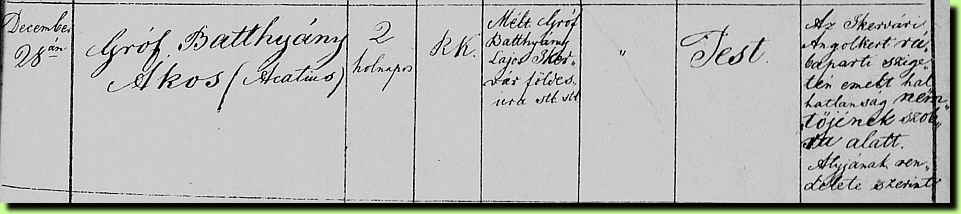 December
28án
Gróf Batthyány
Ákos (Acatius)
2
holnapos
RK.
Mélt. Gróf
Batthyány
Lajos Iker-
vár földes-
ura stb. stb.
"
Test.
Az Ikervári
Angolkert rá-
baparti szige-
tén emelt hal
hatlanság nem-
tőjének szob-
ra alatt.
Atyjának ren-
delete szerint